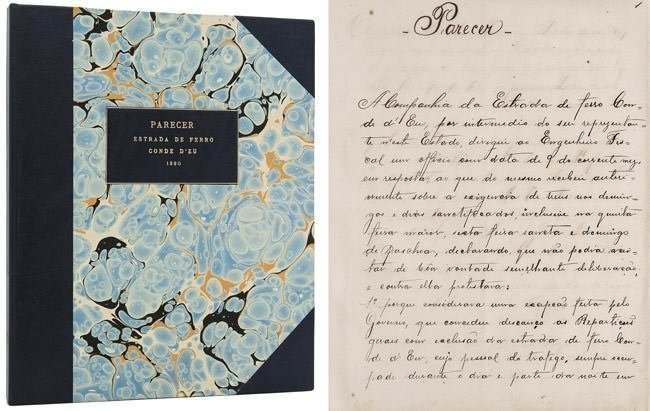 PARECER
ESTRADA DE FERRO
CONDE D'EU
1890
- Parecer -
A Companhia da Estrada de ferro Con-
de d'Eu, por intermedio do seu representan-
te n'este Estado, dirigiu ao Engenheiro Fis-
cal um officio com data de 9 do corrente mez,
em resposta ao que do mesmo recebeu anteri-
ormente sobre a exigencia de trens nos domin-
gos e dias sanctificados, inclusive na quinta
feira maior, sexta feira sancta e domingo
de Paschoa, declarando, que não podia acei-
tar de bôa vontade semelhante deliberação,
e contra ella protestava:
1º porque considerava uma excepção feita pelo
Governo, que concedeu descanço as Repartições
quaes com exclusão da estrada de ferro Con-
de d'Eu, cujo pessoal do trafego, sempre occu-
pado durante o dia e parte da noite em